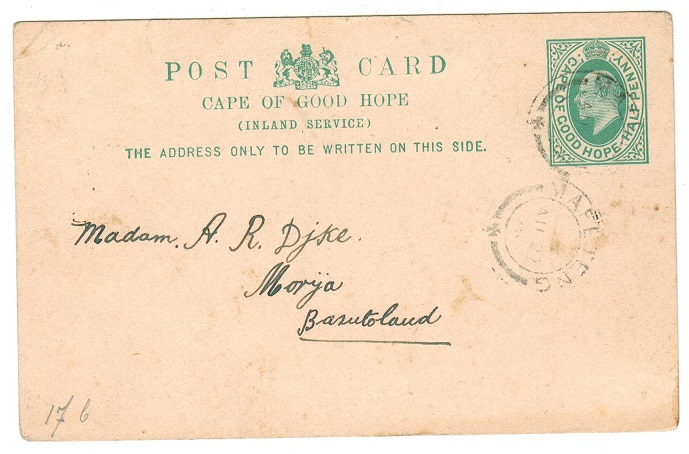 POST CARD
CAPE OF GOOD HOPE
(INLAND SERVICE)
THE ADDRESS ONLY TO BE WRITTEN ON THIS SIDE.
CAPE OF GOOD HOPE · HALF PENNY
MAFETENG
Madam. A. R. Djke.
Morija
Basutoland
17 6